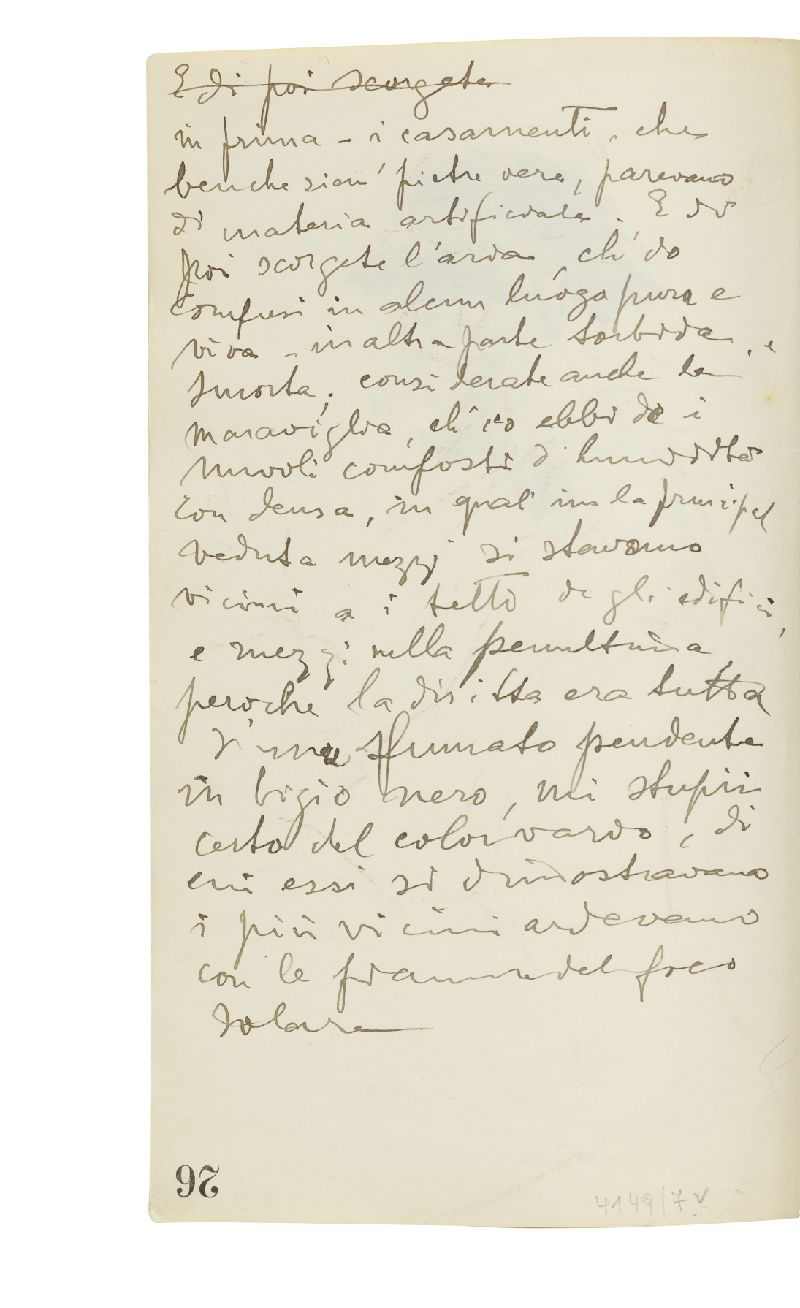 E di poi scorgete
in prima - i casamenti, che
benche sien' pietre vere, parevano
di materia artificiale. E di
poi scorgete l'aria, ch'io
compresi in alcun luogo pura e
viva - in altra parte torbida, e
smorta; considerate anche la
maraviglia, ch'io ebbi de i
nuvoli composti d'humidità
condensa, in quali in la principal
veduta mezzi si stavano
vicini a i tetti de gli edifici,
e mezzi nella penultima
peroche la diritta era tutta
d'uno sfumato pendente
in bigio nero, mi stupii
certo del color vario, di
cui essi si dimostravano
i più vicini ardevano
con le fiamme del foco
solare
26
4149/7 v